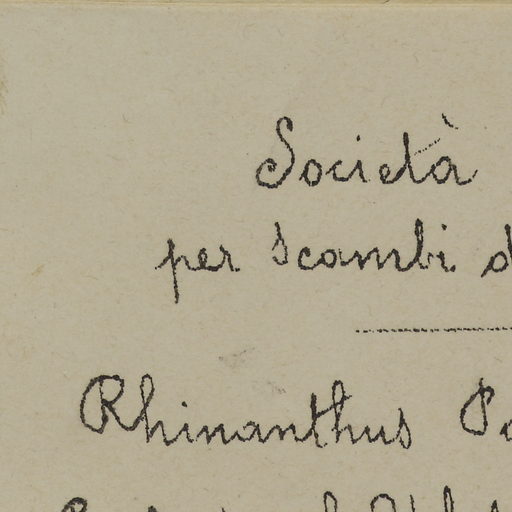 Società
per Scambi d
Rhinanthus Pa